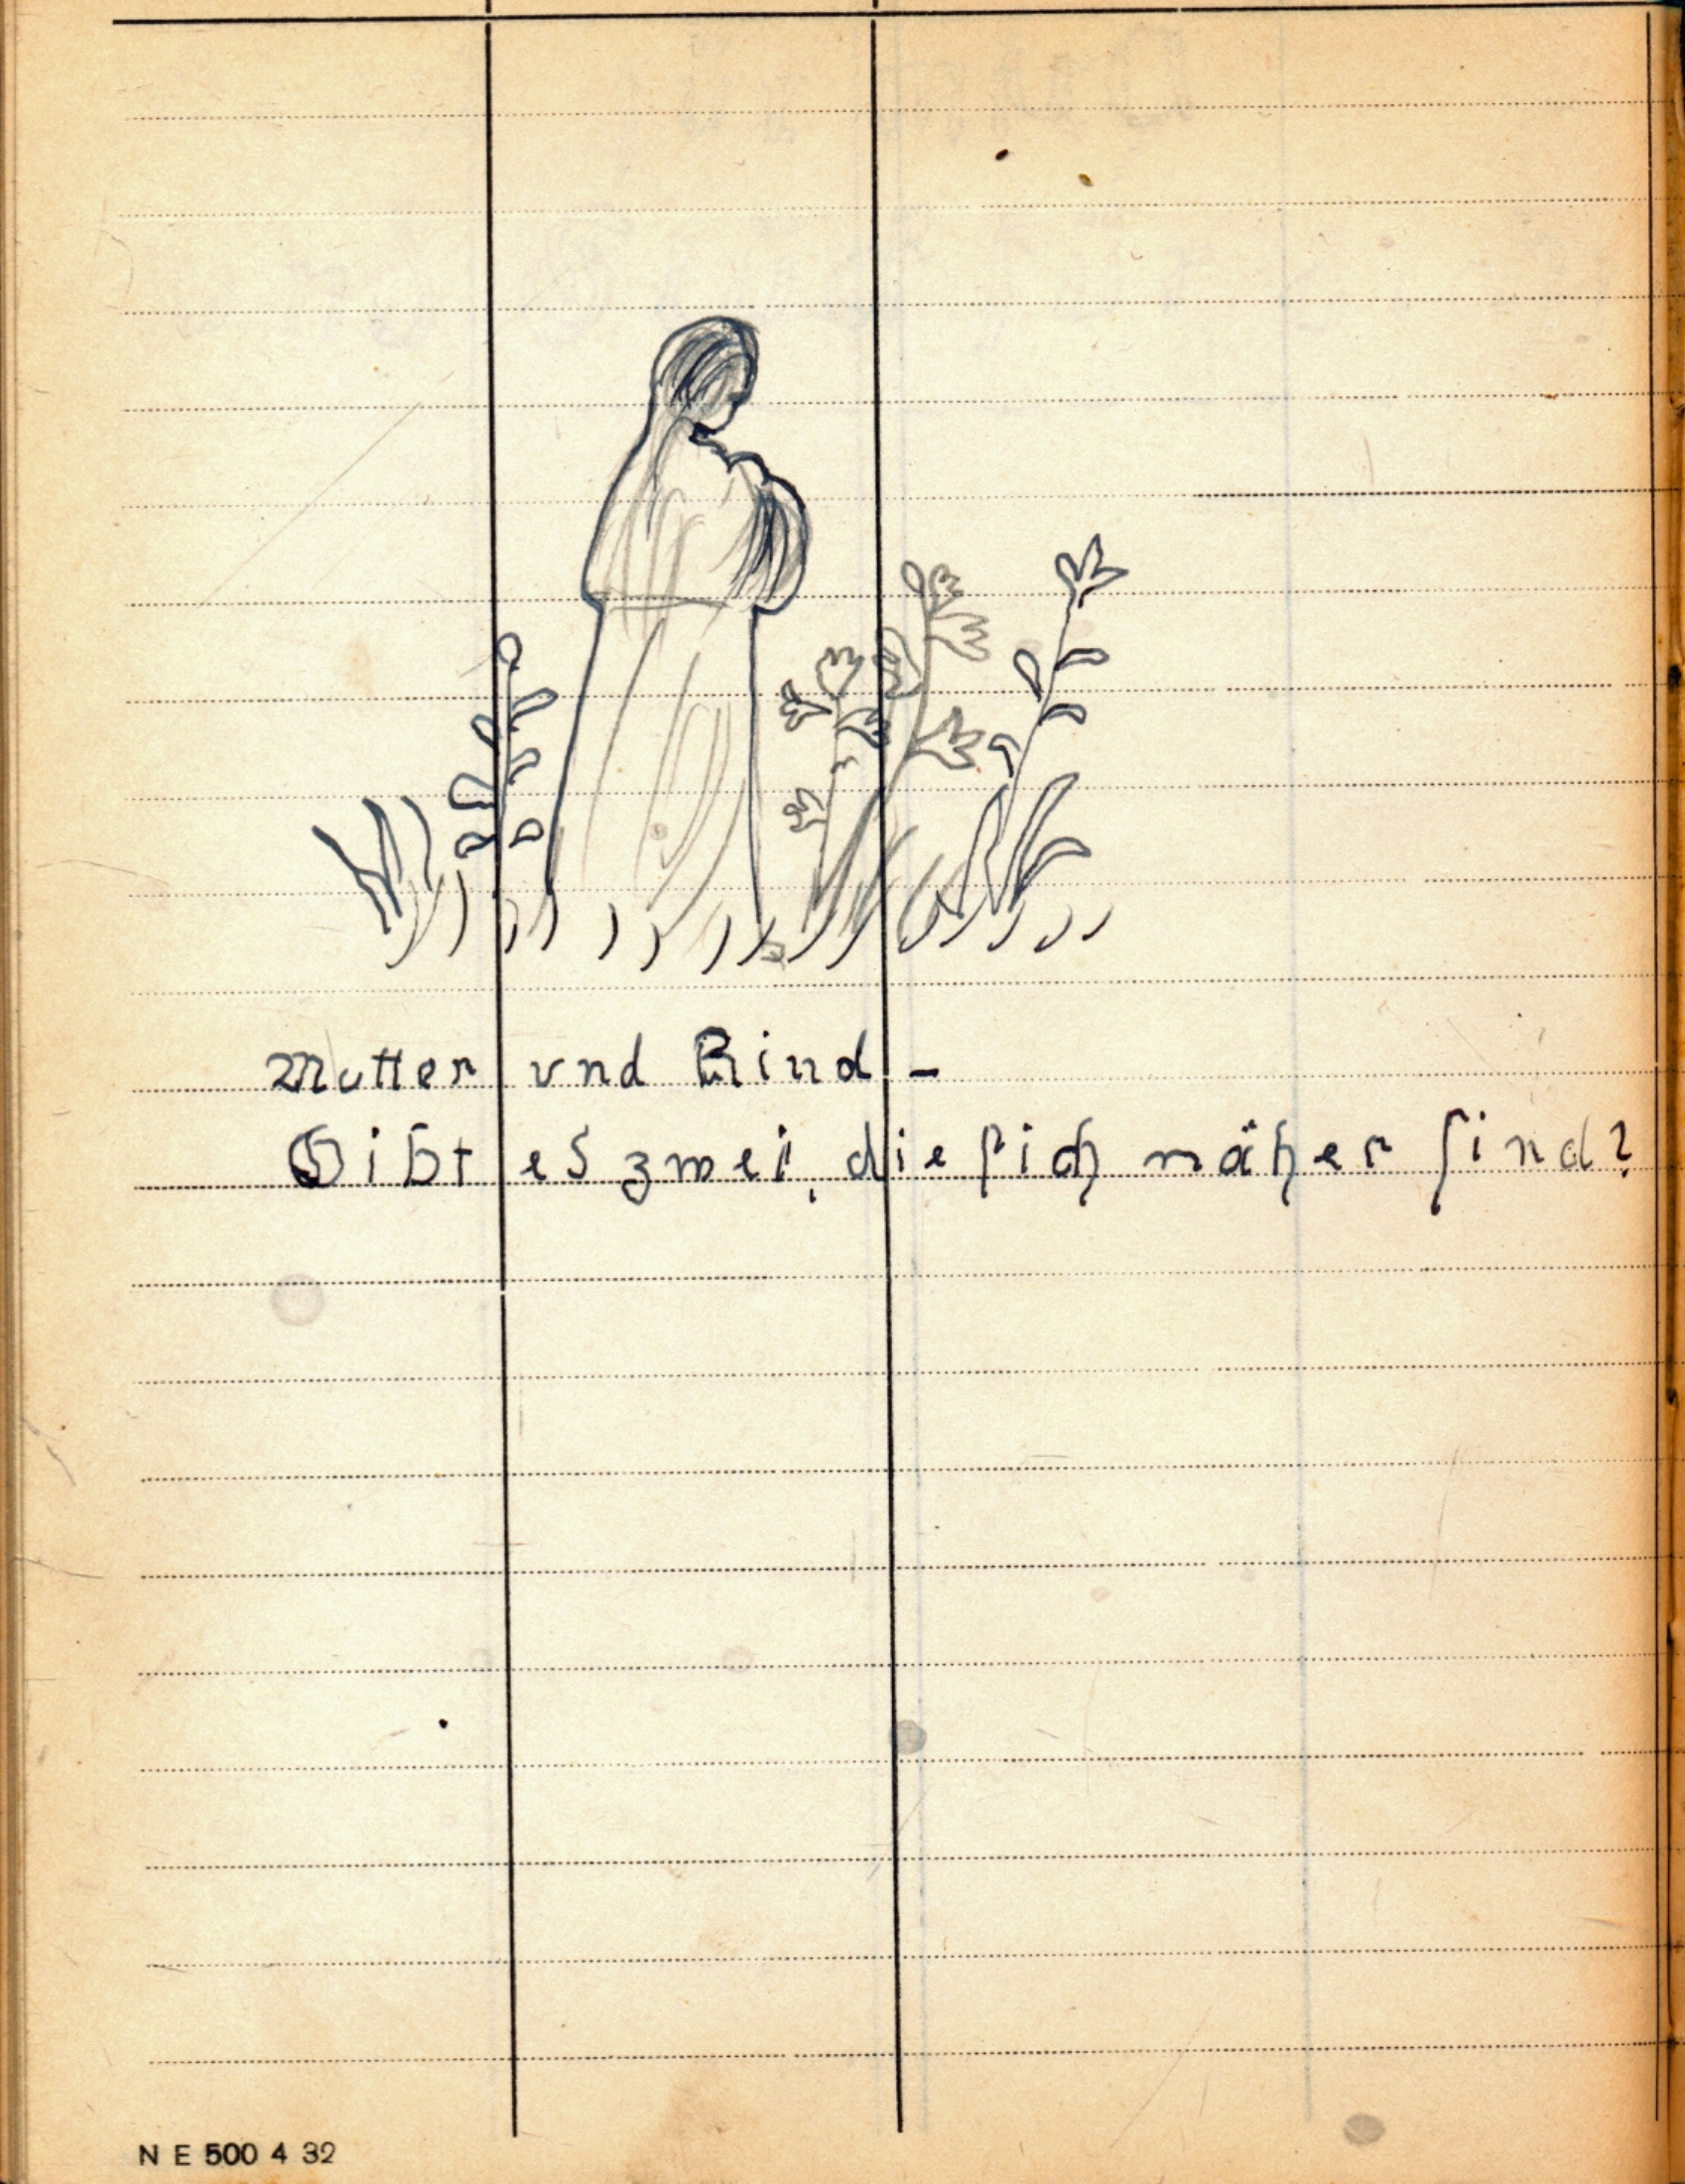 Mutter und Kind –
Gibt es zwei, die sich näher sind?
N E 500 4 32